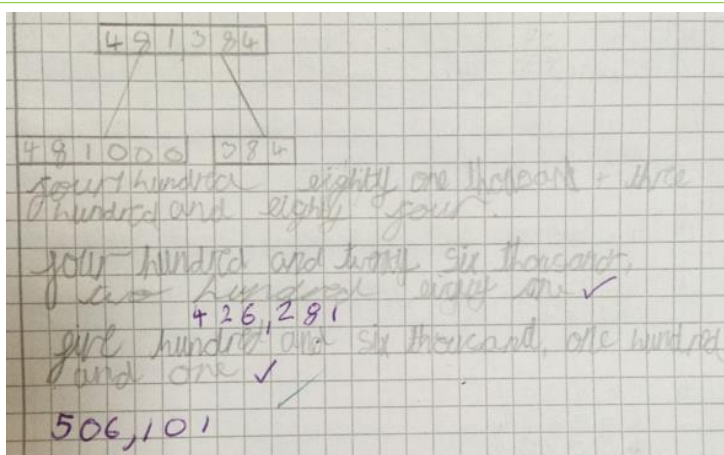 4 8 1 3 8 4
4 8 1 0 0 0 3 8 4
four hundred eighty one thousand + three
hundred and eighty four.
four hundred and twenty six thousand,
two hundred eighty one ✓
426,281
hundred and six thousand, one hundred
and one ✓
506,101